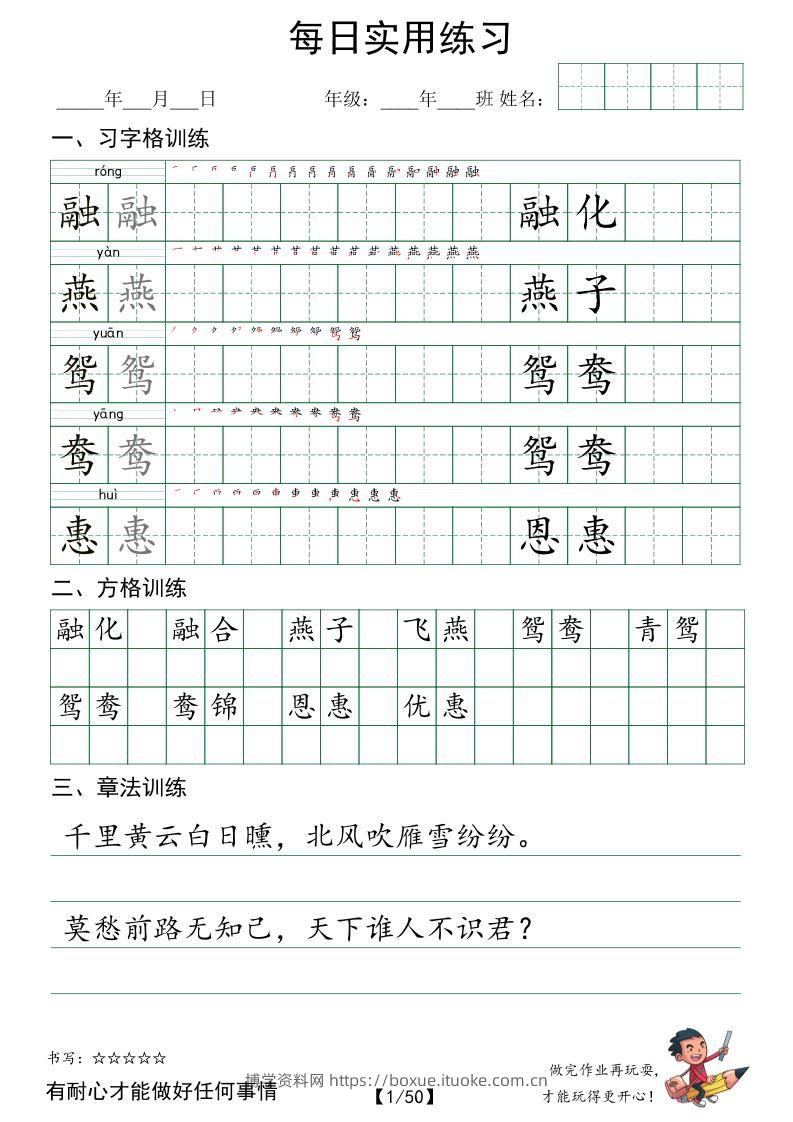 每日实用练习
_____年___月___日 年级：____年____班 姓名：
一、习字格训练
róng
融 融 融 化
yàn
燕 燕 燕 子
yuān
鸳 鸳 鸳 鸯
yāng
鸯 鸯 鸳 鸯
huì
惠 惠 恩 惠
二、方格训练
融 化 融 合 燕 子 飞 燕 鸳 鸯 青 鸳
鸳 鸯 鸯 锦 恩 惠 优 惠
三、章法训练
千里黄云白日曛，北风吹雁雪纷纷。
莫愁前路无知己，天下谁人不识君？
书写：☆☆☆☆☆
有耐心才能做好任何事情
博学资料网 https://boxue.ituoke.com.cn
【1/50】
做完作业再玩耍，
才能玩得更开心！